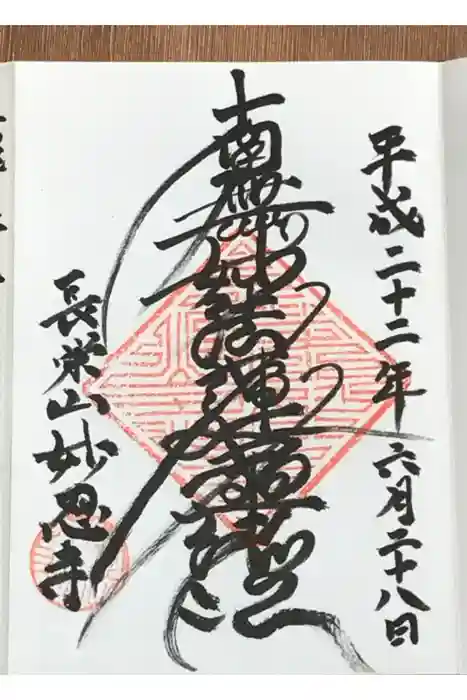 平成二十二年 六月二十八日
南無妙法蓮華経
長栄山妙恩寺